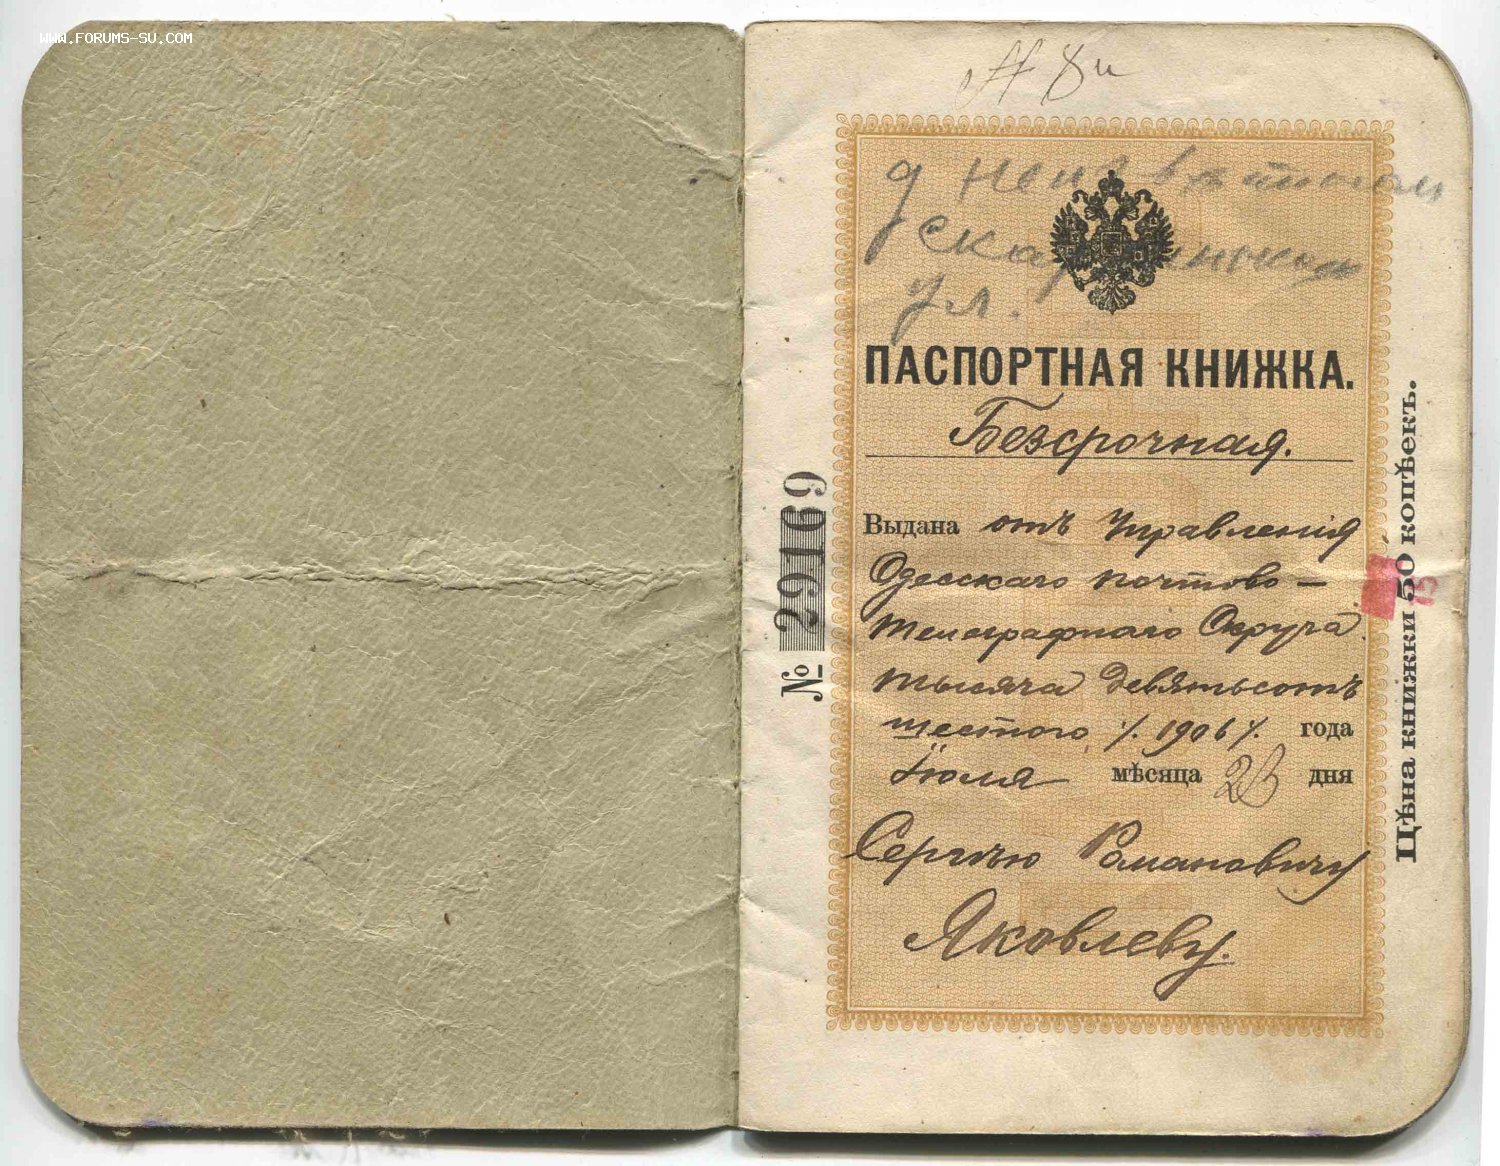 WWW.FORUMS-SU.COM
ул.
ПАСПОРТНАЯ КНИЖКА.
Безсрочная.
Выдана отъ Управленія
Одесскаго почтово-
телеграфнаго Округа
тысяча девятьсотъ
шестого ./. 1906 ./. года
Іюля мѣсяца 28 дня
Сергѣю Романовичу
Яковлеву.
№ 29169
Цѣна книжки 50 копѣекъ.
15